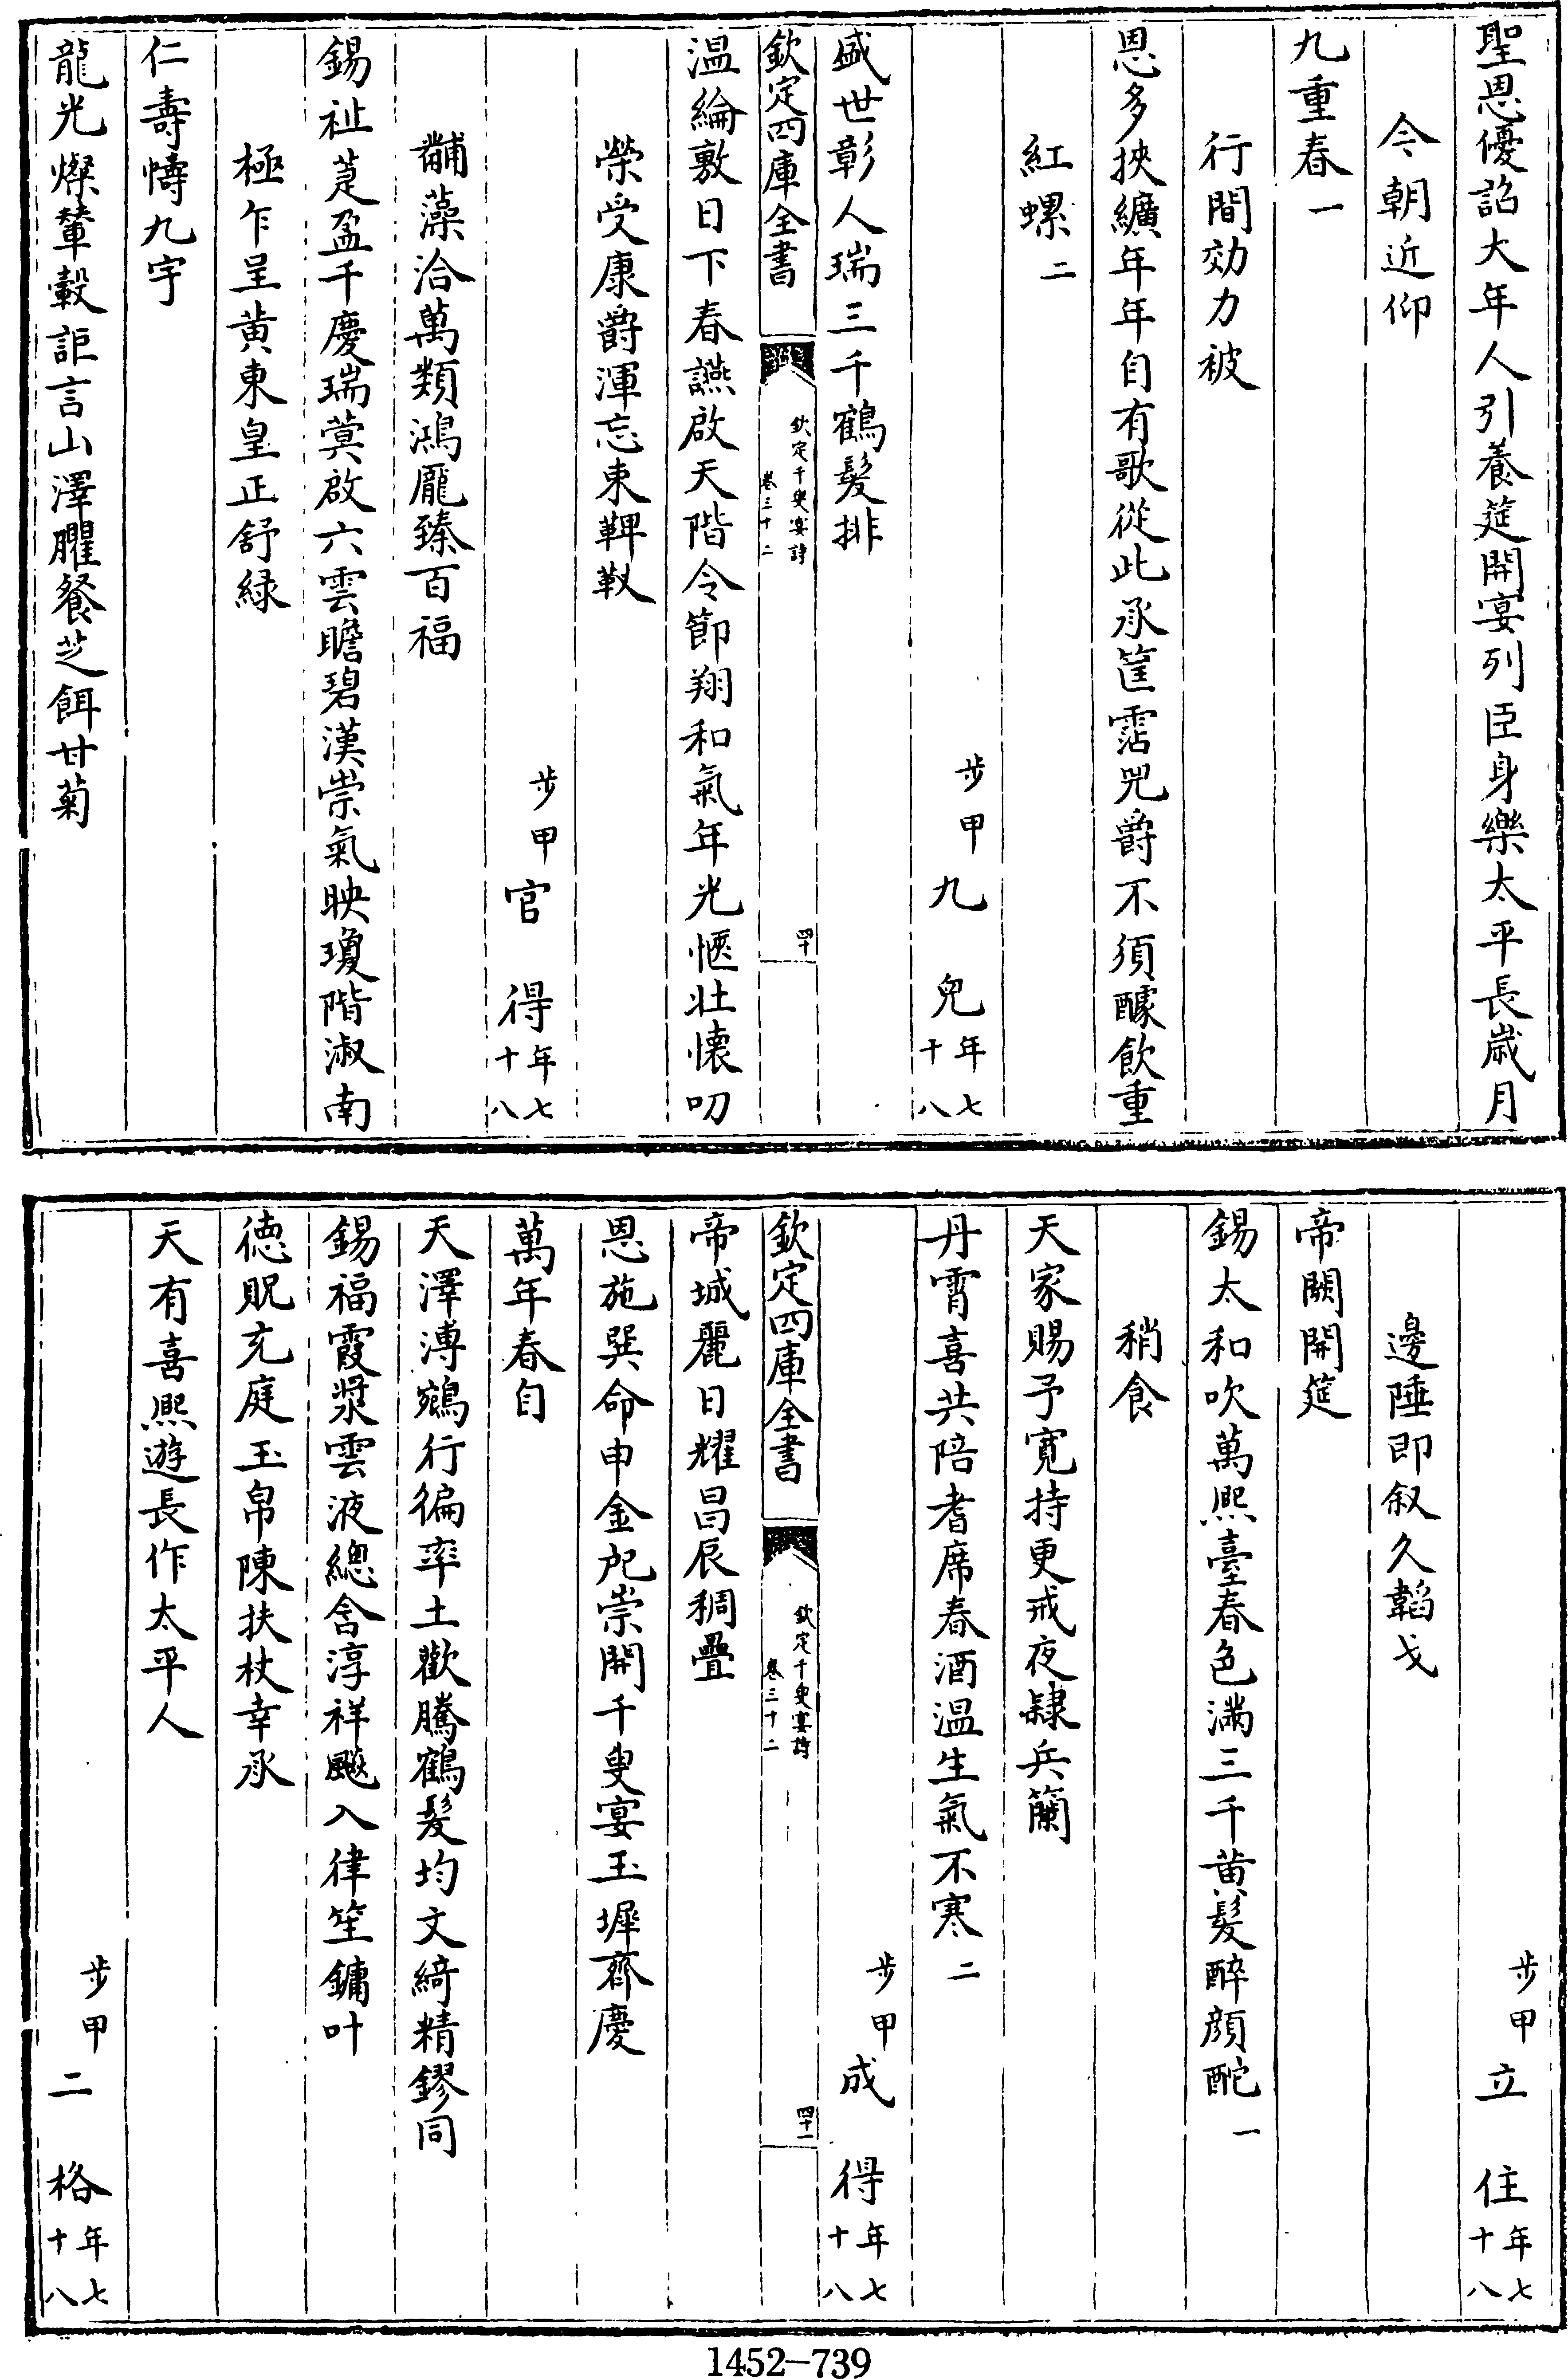 聖恩優詔大年人引養筵開宴列臣身樂太平長歲月
今朝近仰
九重春一
行間効力被
恩多挾纊年年自有歌從此承筐霑兕爵不須醵飲重
紅螺二
步甲九兒年七十八
盛世彰人瑞三千鶴髮排
欽定四庫全書
欽定千叟宴詩
卷三十二
四十
温綸敷日下春讌啟天階令節翔和氣年光愜壯懷叨
榮受康爵渾忘束鞞靫
步甲官得年七十八
黼藻洽萬類鴻龎臻百福
錫祉莛盈千慶瑞蓂啟六雲瞻碧漢崇氣映瓊階淑南
極乍呈黄東皇正舒緑
仁壽幬九宇
龍光燦輦轂詎言山澤臞餐芝餌甘菊
步甲立住年七十八
邊陲即叙久韜戈
帝闕開筵
錫太和吹萬熙臺春色滿三千黄髮醉顔酡一
稍食
天家賜予寛持更戒夜隷兵蘭
丹霄喜共陪耆席春酒温生氣不寒二
步甲成得年七十八
欽定四庫全書
欽定千叟宴詩
卷三十二
四十一
帝城麗日耀昌辰稠疊
恩施巽命申金戺崇開千叟宴玉墀齊慶
萬年春自
天澤溥鵷行徧率土歡騰鶴髮均文綺精鏐同
錫福霞漿雲液總含淳祥飈入律笙鏞叶
徳貺充庭玉帛陳扶杖幸承
天有喜熙遊長作太平人
步甲二格年七十八
1452-739